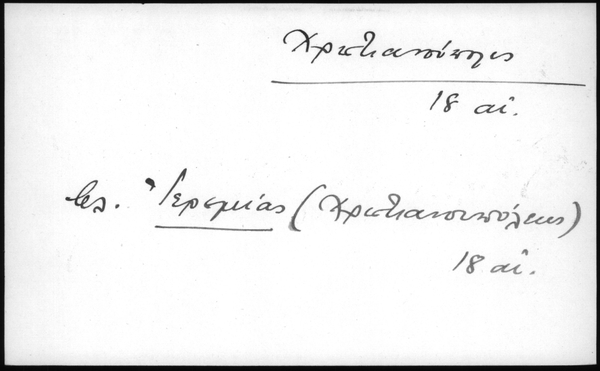 Χριστιανούπολις
18 αἰ.
βλ. Ἱερεμίας (Χριστιανουπόλεως)
18 αἰ.